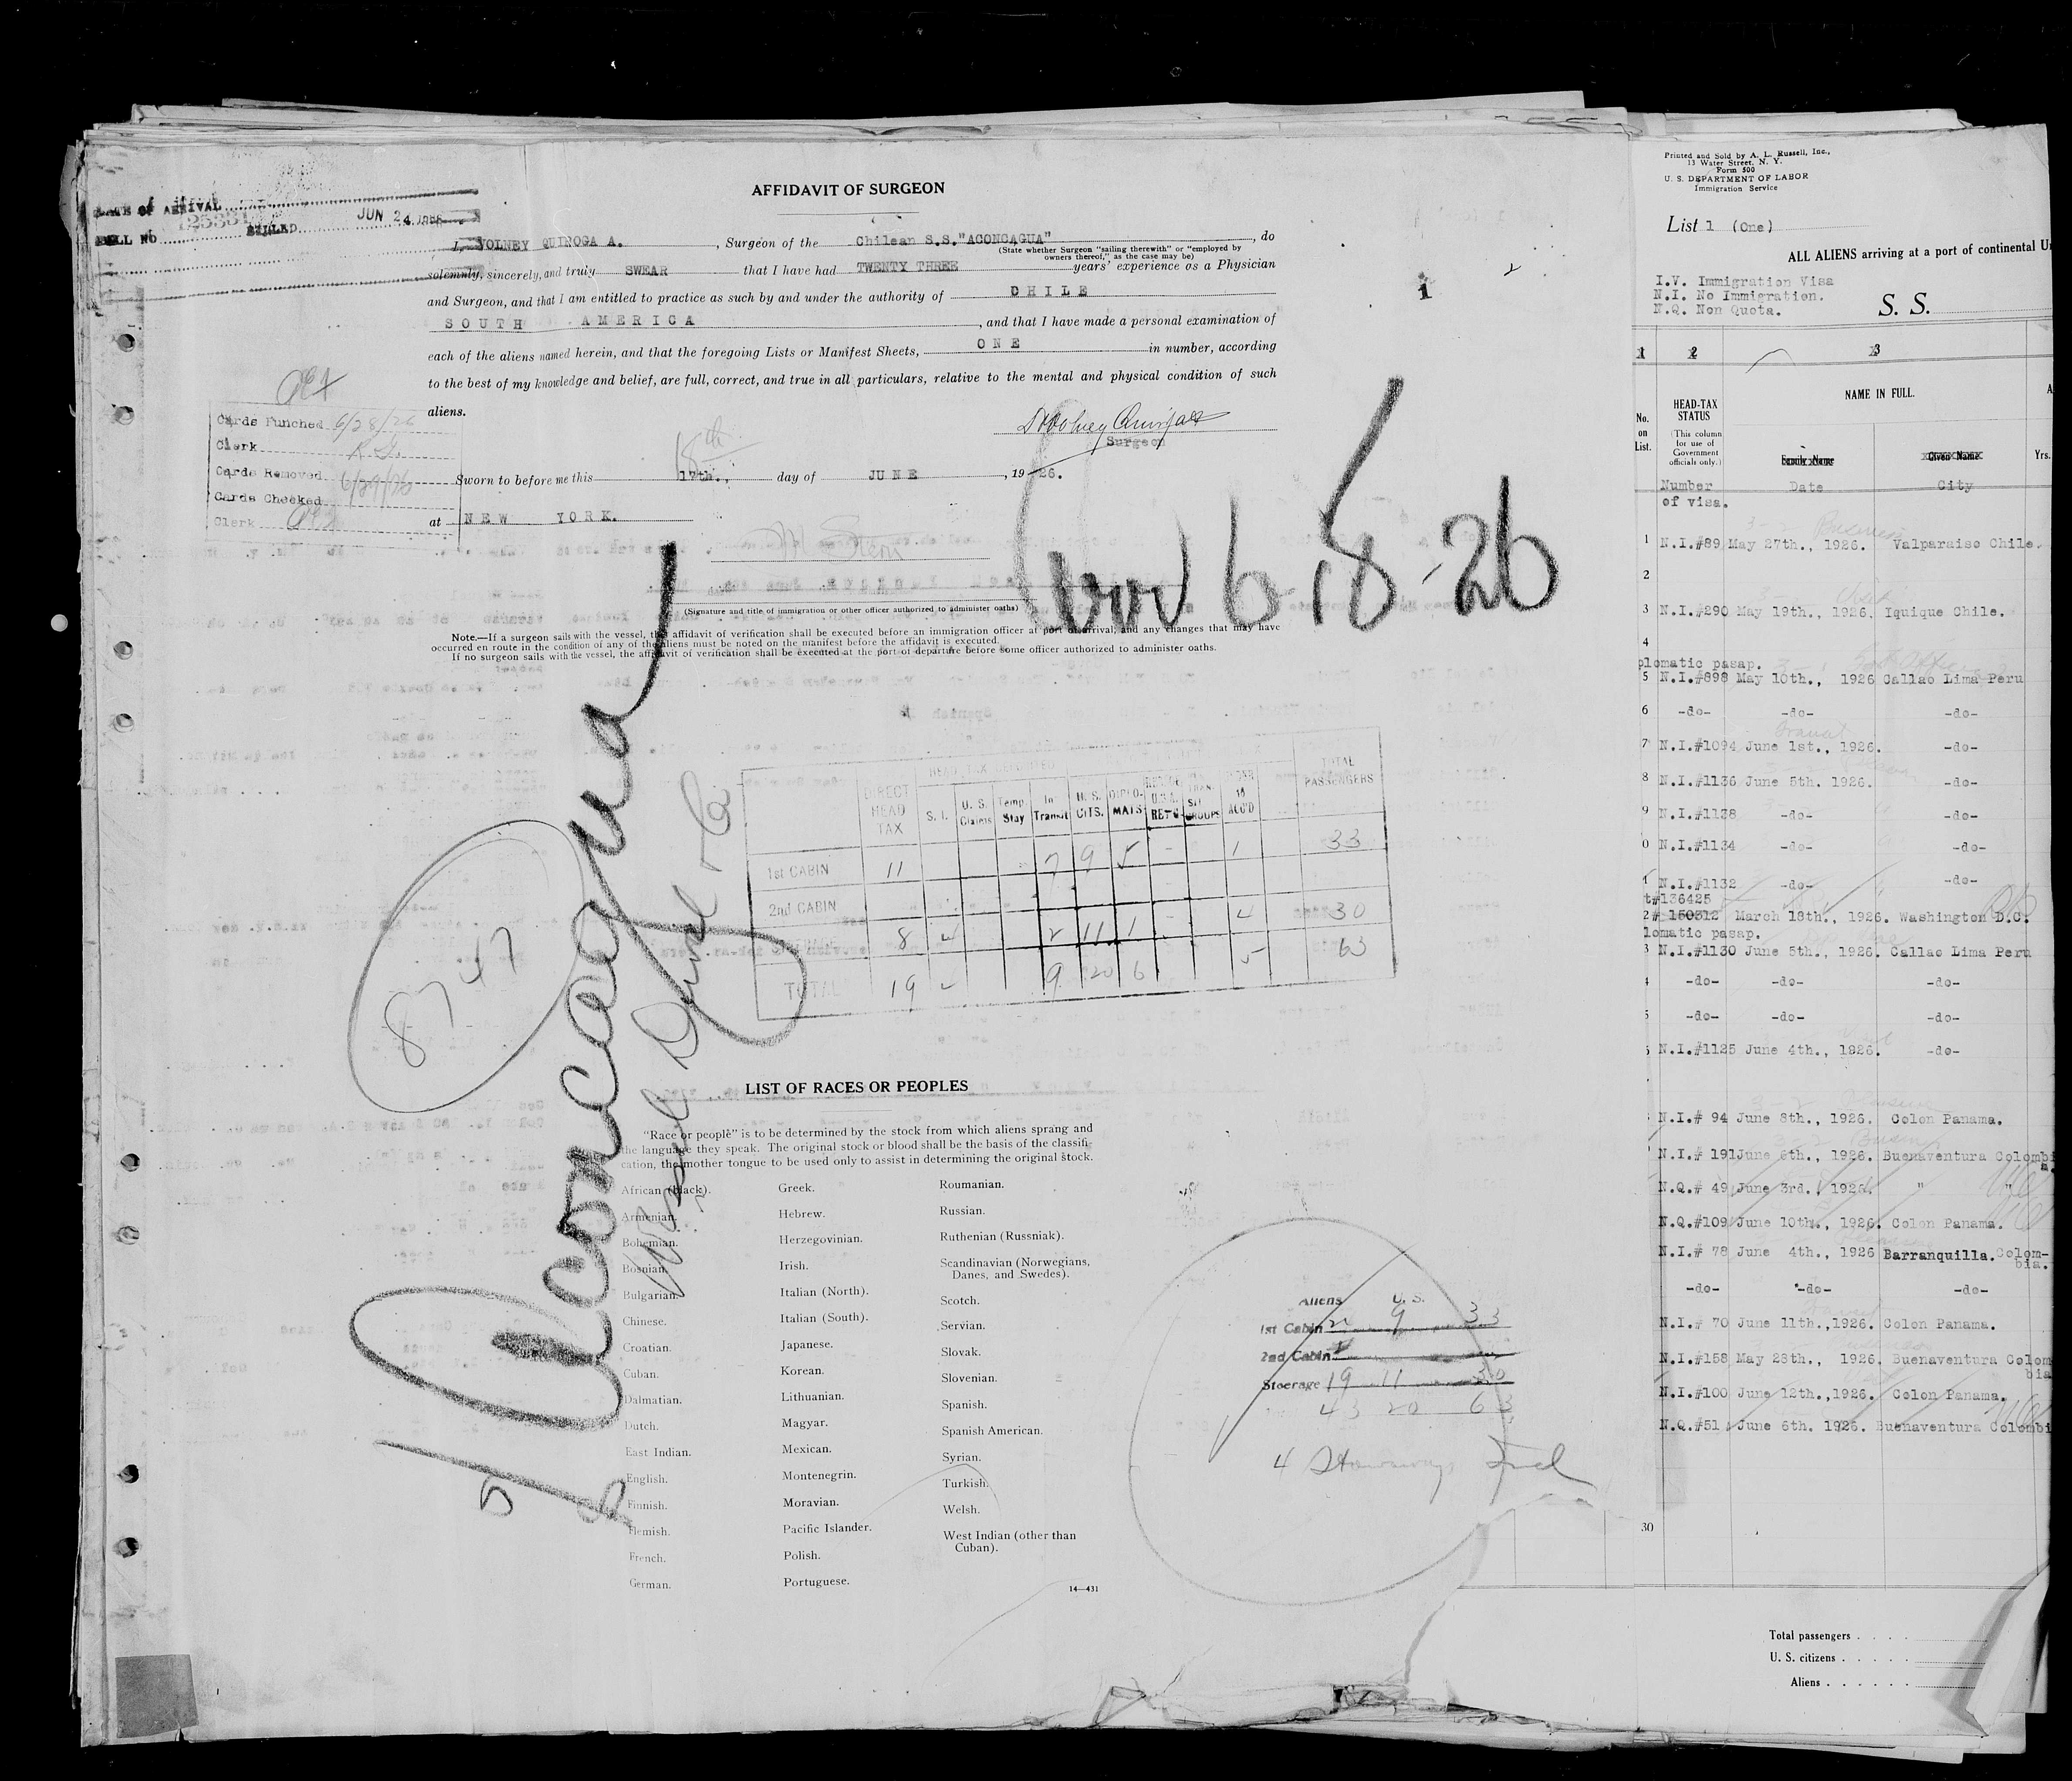 AFFIDAVIT OF SURGEON
DATE OF ARRIVAL
BILL NO. BILLED JUN 24
I, VOLNEY QUIROGA A., Surgeon of the Chilean S.S."ACONCAGUA", do
(State whether Surgeon "sailing therewith" or "employed by
owners thereof," as the case may be)
solemnly, sincerely, and truly SWEAR that I have had TWENTY THREE years' experience as a Physician
and Surgeon, and that I am entitled to practice as such by and under the authority of CHILE
SOUTH AMERICA, and that I have made a personal examination of
each of the aliens named herein, and that the foregoing Lists or Manifest Sheets, ONE in number, according
to the best of my knowledge and belief, are full, correct, and true in all particulars, relative to the mental and physical condition of such
aliens.
Surgeon
Cards Punched 6/28/26
Clerk
Cards Removed 6/29/26
Cards Checked
Clerk
18th
Sworn to before me this 17th., day of JUNE, 1926.
at NEW YORK.
M Stern
(Signature and title of immigration or other officer authorized to administer oaths)
Note.—If a surgeon sails with the vessel, the affidavit of verification shall be executed before an immigration officer at port of arrival, and any changes that may have
occurred en route in the condition of any of the aliens must be noted on the manifest before the affidavit is executed.
If no surgeon sails with the vessel, the affidavit of verification shall be executed at the port of departure before some officer authorized to administer oaths.
6-18-26
Aconcagua
Wessel Duval & Co
8747
HEAD TAX DEPOSITED
DIRECT HEAD TAX S. I. U. S. Claims Temp. Stay In Transit U. S. CITS. DIPLO-MATS TOTAL PASSENGERS
1st CABIN 11 7 9 5 - 1 33
2nd CABIN
8 4 2 11 1 - 4 30
TOTAL 19 9 20 6 5 63
LIST OF RACES OR PEOPLES
"Race or people" is to be determined by the stock from which aliens sprang and
the language they speak. The original stock or blood shall be the basis of the classifi-
cation, the mother tongue to be used only to assist in determining the original stock.
African (black).
Armenian.
Bohemian.
Bosnian.
Bulgarian.
Chinese.
Croatian.
Cuban.
Dalmatian.
Dutch.
East Indian.
English.
Finnish.
Flemish.
French.
German.
Greek.
Hebrew.
Herzegovinian.
Irish.
Italian (North).
Italian (South).
Japanese.
Korean.
Lithuanian.
Magyar.
Mexican.
Montenegrin.
Moravian.
Pacific Islander.
Polish.
Portuguese.
Roumanian.
Russian.
Ruthenian (Russniak).
Scandinavian (Norwegians,
Danes, and Swedes).
Scotch.
Servian.
Slovak.
Slovenian.
Spanish.
Spanish American.
Syrian.
Turkish.
Welsh.
West Indian (other than
Cuban).
14—431
Aliens U. S.
1st Cabin 9 33
2nd Cabin
Steerage 19 11 30
43 20 63
4 Stowaways
Printed and Sold by A. L. Russell, Inc.,
13 Water Street, N. Y.
Form 500
U. S. DEPARTMENT OF LABOR
Immigration Service
List 1 (One)
ALL ALIENS arriving at a port of continental
I.V. Immigration Visa
N.I. No Immigration.
N.Q. Non Quota.
S. S.
1 2 3
No. on List.
HEAD-TAX STATUS
(This column for use of Government officials only.)
NAME IN FULL.
Family Name Given Name Yrs.
Number of visa. Date City
1 N.I.#89 May 27th., 1926. Valparaiso Chile.
2
3 N.I.#290 May 19th., 1926. Iquique Chile.
4
plomatic pasap.
5 N.I.#898 May 10th., 1926 Callao Lima Peru
6 -do- -do- -do-
7 N.I.#1094 June 1st., 1926. -do-
8 N.I.#1136 June 5th. 1926. -do-
9 N.I.#1138 -do- -do-
0 N.I.#1134 -do- -do-
1 N.I.#1132 -do- -do-
t#136425
2 # 150312 March 18th., 1926. Washington D.C.
lomatic pasap.
3 N.I.#1130 June 5th., 1926. Callao Lima Peru
-do- -do- -do-
-do- -do- -do-
N.I.#1125 June 4th., 1926. -do-
N.I.# 94 June 8th., 1926. Colon Panama.
N.I.# 191 June 6th., 1926. Buenaventura Colombia.
N.Q.# 49 June 3rd., 1926. " "
N.Q.#109 June 10th., 1926. Colon Panama.
N.I.# 78 June 4th., 1926 Barranquilla. Colom-
bia.
-do- -do- -do-
N.I.# 70 June 11th., 1926. Colon Panama.
N.I.#158 May 28th., 1926. Buenaventura Colom
bia
N.I.#100 June 12th., 1926. Colon Panama.
N.Q.#51 June 6th. 1926. Buenaventura Colombi
30
Total passengers
U. S. citizens
Aliens